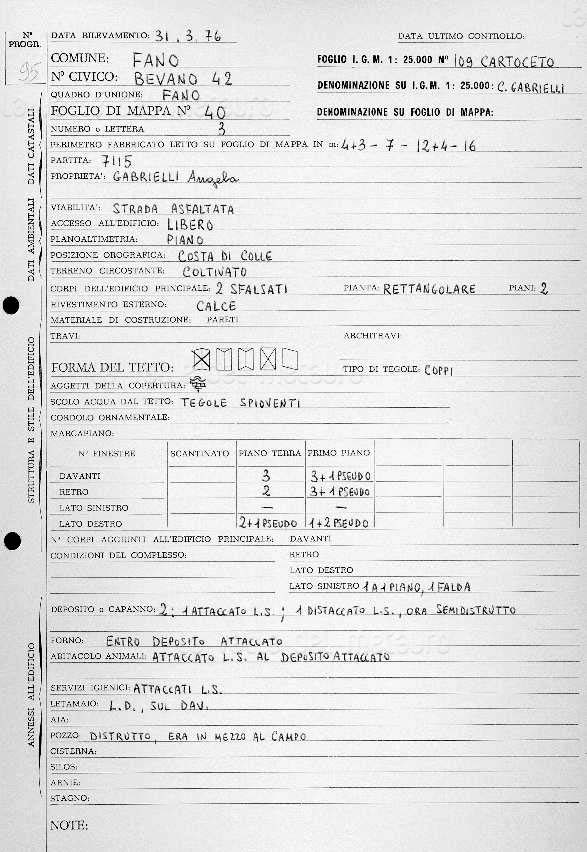 Nº PROGR.
95
DATA RILEVAMENTO: 31.3.76
DATA ULTIMO CONTROLLO:
COMUNE: FANO
FOGLIO I.G.M. 1: 25.000 Nº 109 CARTOCETO
Nº CIVICO: BEVANO 42
DENOMINAZIONE SU I.G.M. 1: 25.000: C. GABRIELLI
QUADRO D'UNIONE: FANO
FOGLIO DI MAPPA Nº 40
DENOMINAZIONE SU FOGLIO DI MAPPA:
NUMERO o LETTERA 3
PERIMETRO FABBRICATO LETTO SU FOGLIO DI MAPPA IN m: 4+3-7-12+4-16
PARTITA: 7115
PROPRIETA': GABRIELLI Angela
DATI CATASTALI
VIABILITA': STRADA ASFALTATA
ACCESSO ALL'EDIFICIO: LIBERO
PLANOALTIMETRIA: PIANO
POSIZIONE OROGRAFICA: COSTA DI COLLE
TERRENO CIRCOSTANTE: COLTIVATO
DATI AMBIENTALI
CORPI DELL'EDIFICIO PRINCIPALE: 2 SFALSATI PIANTA: RETTANGOLARE PIANI: 2
RIVESTIMENTO ESTERNO: CALCE
MATERIALE DI COSTRUZIONE: PARETI
TRAVI: ARCHITRAVI:
FORMA DEL TETTO: TIPO DI TEGOLE: COPPI
AGGETTI DELLA COPERTURA:
SCOLO ACQUA DAL TETTO: TEGOLE SPIOVENTI
CORDOLO ORNAMENTALE:
MARCAPIANO:
STRUTTURA E STILE DELL'EDIFICIO
Nº FINESTRE SCANTINATO PIANO TERRA PRIMO PIANO
DAVANTI 3 3+1 PSEUDO
RETRO 2 3+1 PSEUDO
LATO SINISTRO — —
LATO DESTRO 2+1 PSEUDO 1+2 PSEUDO
Nº CORPI AGGIUNTI ALL'EDIFICIO PRINCIPALE: DAVANTI
CONDIZIONI DEL COMPLESSO: RETRO
LATO DESTRO
LATO SINISTRO 1 A 1 PIANO, 1 FALDA
DEPOSITO o CAPANNO: 2: 1 ATTACCATO L.S.; 1 DISTACCATO L.S., ORA SEMIDISTRUTTO
FORNO: ENTRO DEPOSITO ATTACCATO
ABITACOLO ANIMALI: ATTACCATO L.S. AL DEPOSITO ATTACCATO
SERVIZI IGIENICI: ATTACCATI L.S.
LETAMAIO: L.D., SUL DAV.
AIA:
POZZO: DISTRUTTO, ERA IN MEZZO AL CAMPO
CISTERNA:
SILOS:
ARNIE:
STAGNO:
ANNESSI ALL'EDIFICIO
NOTE: